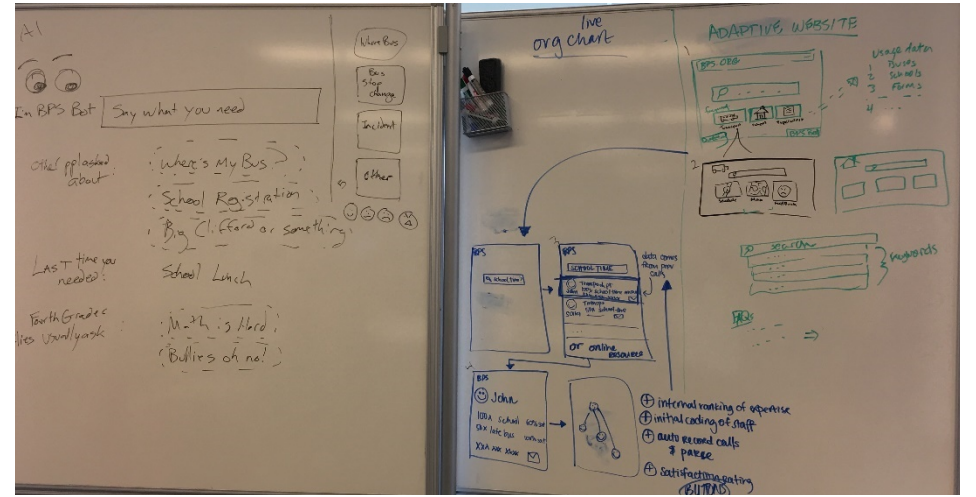 AI
I'm BPS Bot
Say what you need
Other ppl asked
about:
Where's My Bus?
School Registration
Big Clifford or something
Last time you
needed:
School Lunch
Fourth Grade
usually ask:
Math is Hard
Bullies oh no!
Where Bus
Bus
Stop
Change
Incident
Other
live
org chart
BPS
School time?
BPS
SCHOOL TIME
Transport
Transpo
or online
resources
data comes
from prev
calls
BPS
John
100x school
50x late bus
XXX XXX XXXX
+ internal ranking of expertise
+ initial coding of staff
+ auto record calls
& parse
+ satisfaction rating
BUTTONS
ADAPTIVE WEBSITE
1
BPS.ORG
Usage data
1 Buses
2 Schools
3 Forms
4
2
search
keywords
FAQs